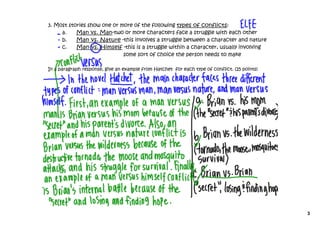 3. Most stories show one or more of the following types of conflicts:
ELTE
a. Man vs. Man-two or more characters face a struggle with each other
b. Man vs. Nature -this involves a struggle between a character and nature
c. Man vs. Himself -this is a struggle within a character, usually involving
some sort of choice the person needs to make
In a paragraph response, give an example from Hatchet for each type of conflict. (25 points)
conflict
versus
In the novel Hatchet, the main character faces three different
types of conflict: man versus man, man versus nature, and man versus
himself. First, an example of a man versus
man is Brian versus his mom because of the
"secret" and his parent's divorce. Also, an
example of a man versus nature conflict is
Brian versus the wilderness because of the
destructive tornado, the moose and mosquito
attacks, and his struggle for survival. Finally,
an example of a man versus himself conflict
is Brian's internal battle because of the
"secret" and losing and finding hope.
a. Brian vs. his mom
(the "secret" / his parent's divorce)
b. Brian vs. the wilderness
(tornado, the moose, mosquitoes
survival)
c. Brian vs. Brian
("secret", losing + finding hope
3